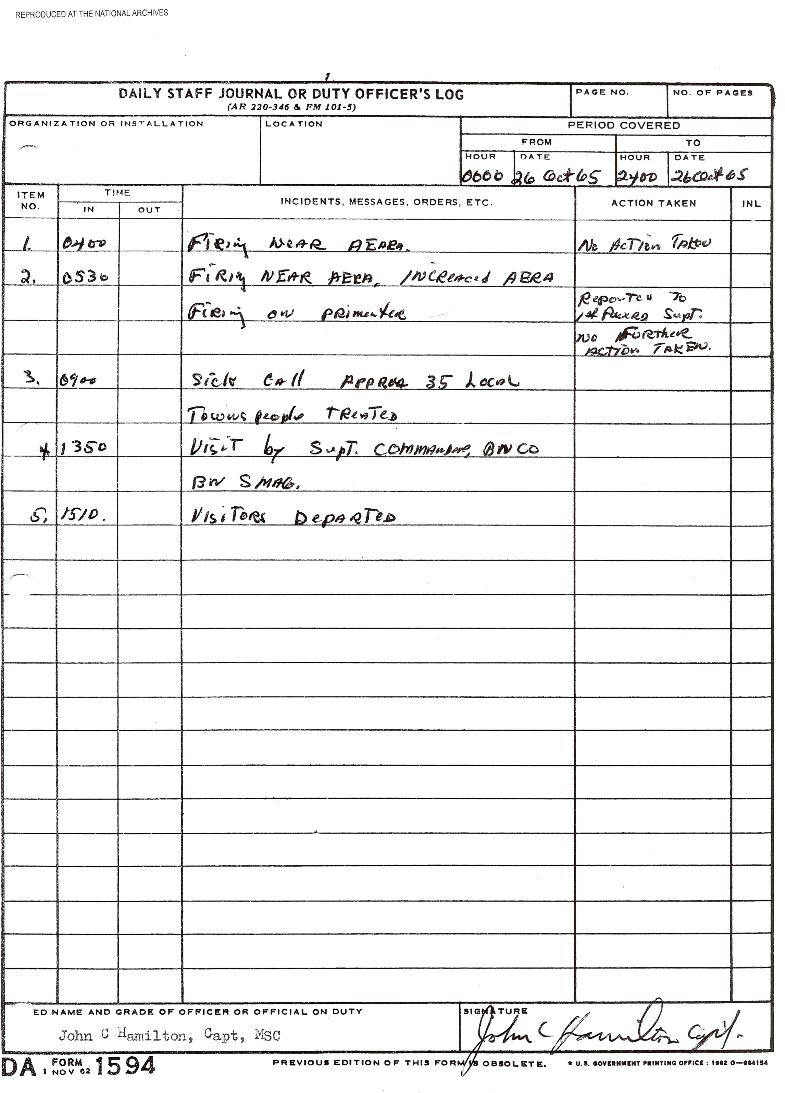 REPRODUCED AT THE NATIONAL ARCHIVES
1
DAILY STAFF JOURNAL OR DUTY OFFICER'S LOG
(AR 220-346 & FM 101-5)
PAGE NO.
NO. OF PAGES
ORGANIZATION OR INSTALLATION
LOCATION
PERIOD COVERED
FROM
TO
HOUR DATE HOUR DATE
0000 26 Oct 65 2400 26 Oct 65
ITEM NO.
TIME
IN OUT
INCIDENTS, MESSAGES, ORDERS, ETC.
ACTION TAKEN
INL
1. 0400 Firing NEAR AEARA. No Action Taken
2. 0530 FiRing NEAR AERA, INCReaced AERA
Firing on PRimenter
Reported To
1st Supt.
No FURTHER
ACTION TAKEN.
3. 0900 Sick Call APPROX 35 Local
Towns people TReated
4. 1350 Visit by Supt. COMMANDING, BNCO
BN SMAG.
5. 1510. VISITORS DEPARTED
ED NAME AND GRADE OF OFFICER OR OFFICIAL ON DUTY
John C Hamilton, Capt, MSC
SIGNATURE
John C Hamilton Capt.
DA FORM 1 NOV 62 1594
PREVIOUS EDITION OF THIS FORM IS OBSOLETE.
* U.S. GOVERNMENT PRINTING OFFICE : 1962 O—664154